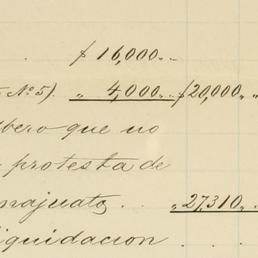 $ 16,000 "
Nº 5). " 4,000 " $ 20,000 "
bero que no
protesta de
najuato . . " 27,310 "
iquidacion . . .